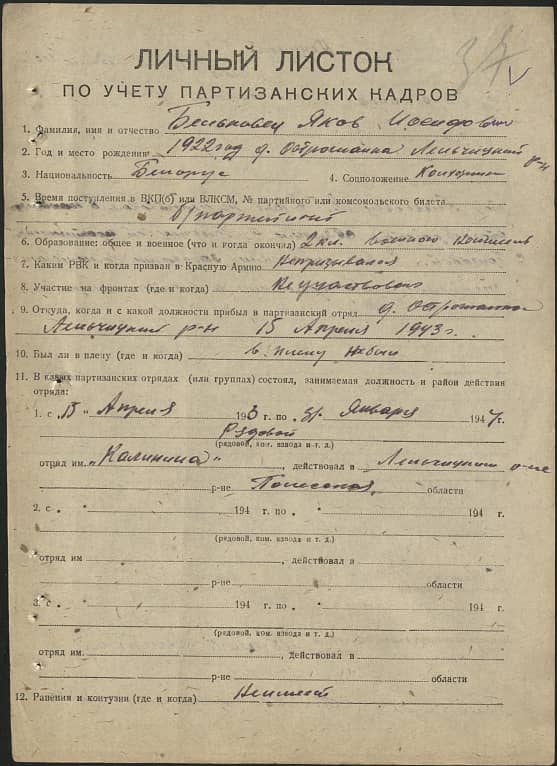 37 v
ЛИЧНЫЙ ЛИСТОК
ПО УЧЕТУ ПАРТИЗАНСКИХ КАДРОВ
1. Фамилия, имя и отчество Бельковец Яков Иосифович
2. Год и место рождения 1922 год д. Острожанка Лельчицкий р-н
3. Национальность Белорус 4. Соцположение
5. Время поступления в ВКП(б) или ВЛКСМ, № партийного или комсомольского билета
б/партейный
6. Образование: общее и военное (что и когда окончил) 2 кл.
7. Каким РВК и когда призван в Красную Армию Непризывался
8. Участие на фронтах (где и когда) Не участвовал
9. Откуда, когда и с какой должности прибыл в партизанский отряд д. Острожанка
Лельчицкий р-н 15 Апреля 1943 г.
10. Был ли в плену (где и когда) в плену небыл
11. В каких партизанских отрядах (или группах) состоял, занимаемая должность и район действия
отряда:
1. с 15 " Апреля 1943 г. по 31 Января 1944 г.
Рядовой
(рядовой, ком. взвода и т. д.)
отряд им. "Калинина" , действовал в Лельчицком р-не
р-не Полесской области
2. с " 194 г. по " 194 г.
(рядовой, ком. взвода и т. д.)
отряд им , действовал в
р-не области
3. с " 194 г. по " 194 г.
(рядовой, ком. взвода и т. д.)
отряд им. , действовал в
р-не области
12. Ранения и контузии (где и когда) Неимеет